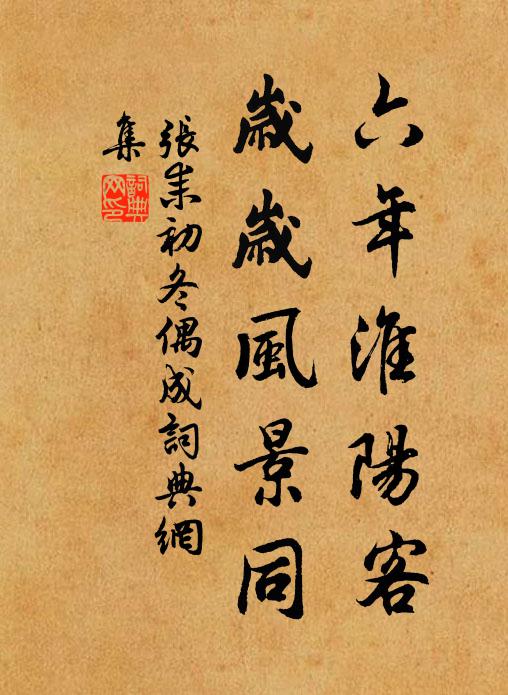 六年淮陽客
歲歲風景同
張耒初冬偶成詞典網
集
詞典
网印